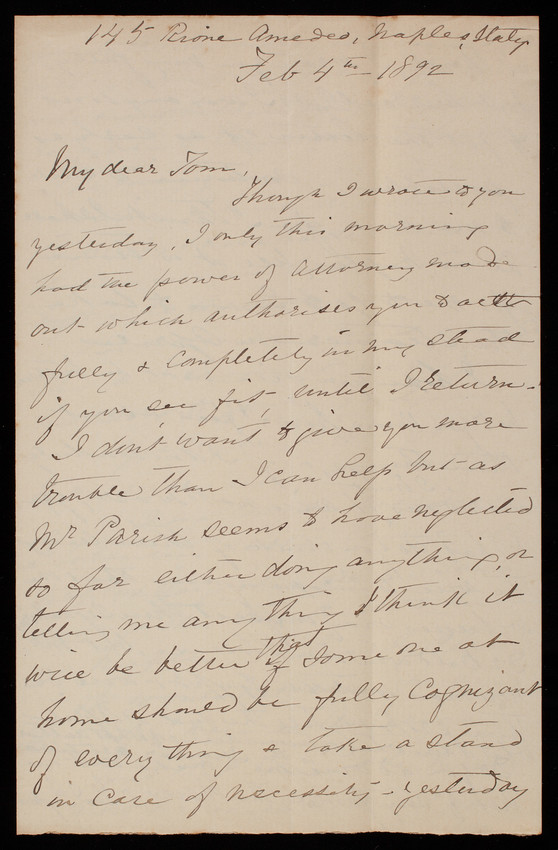 145 Rione Amedeo, Naples, Italy
Feb 4th - 1892
My dear Tom,
Though I wrote to you
yesterday, I only this morning
had the power of Attorney made
out which authorises you to act
fully & completely in my stead
if you see fit, until I return.
I don't want to give you more
trouble than I can help but as
Mr Parish seems to have neglected
so far either doing anything, or
telling me anything I think it
will be better that some one at
home should be fully cognizant
of everything & take a stand
in case of necessity - yesterday